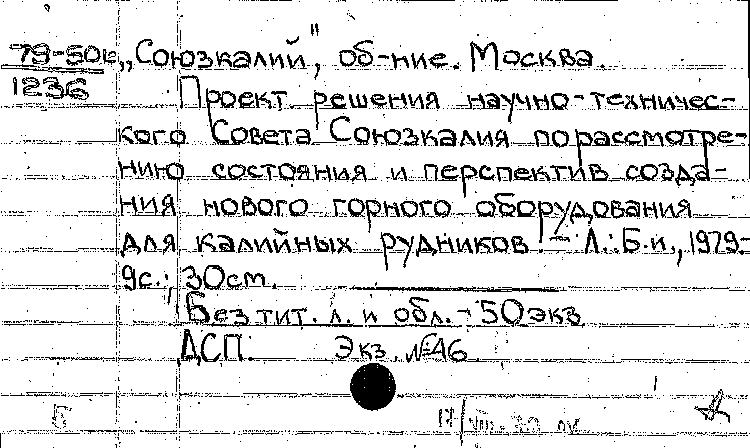 79-50
1236
„Союзкалий", об-ние. Москва.
Проект решения научно-техничес-
кого Совета Союзкалия по рассмотре-
нию состояния и перспектив созда-
ния нового горного оборудования
для калийных рудников. - Л.: Б.и., 1979.-
9с.; 30см.
Без тит. л. и обл. - 50экз.
ДСП. Экз. №46
17/VIII-